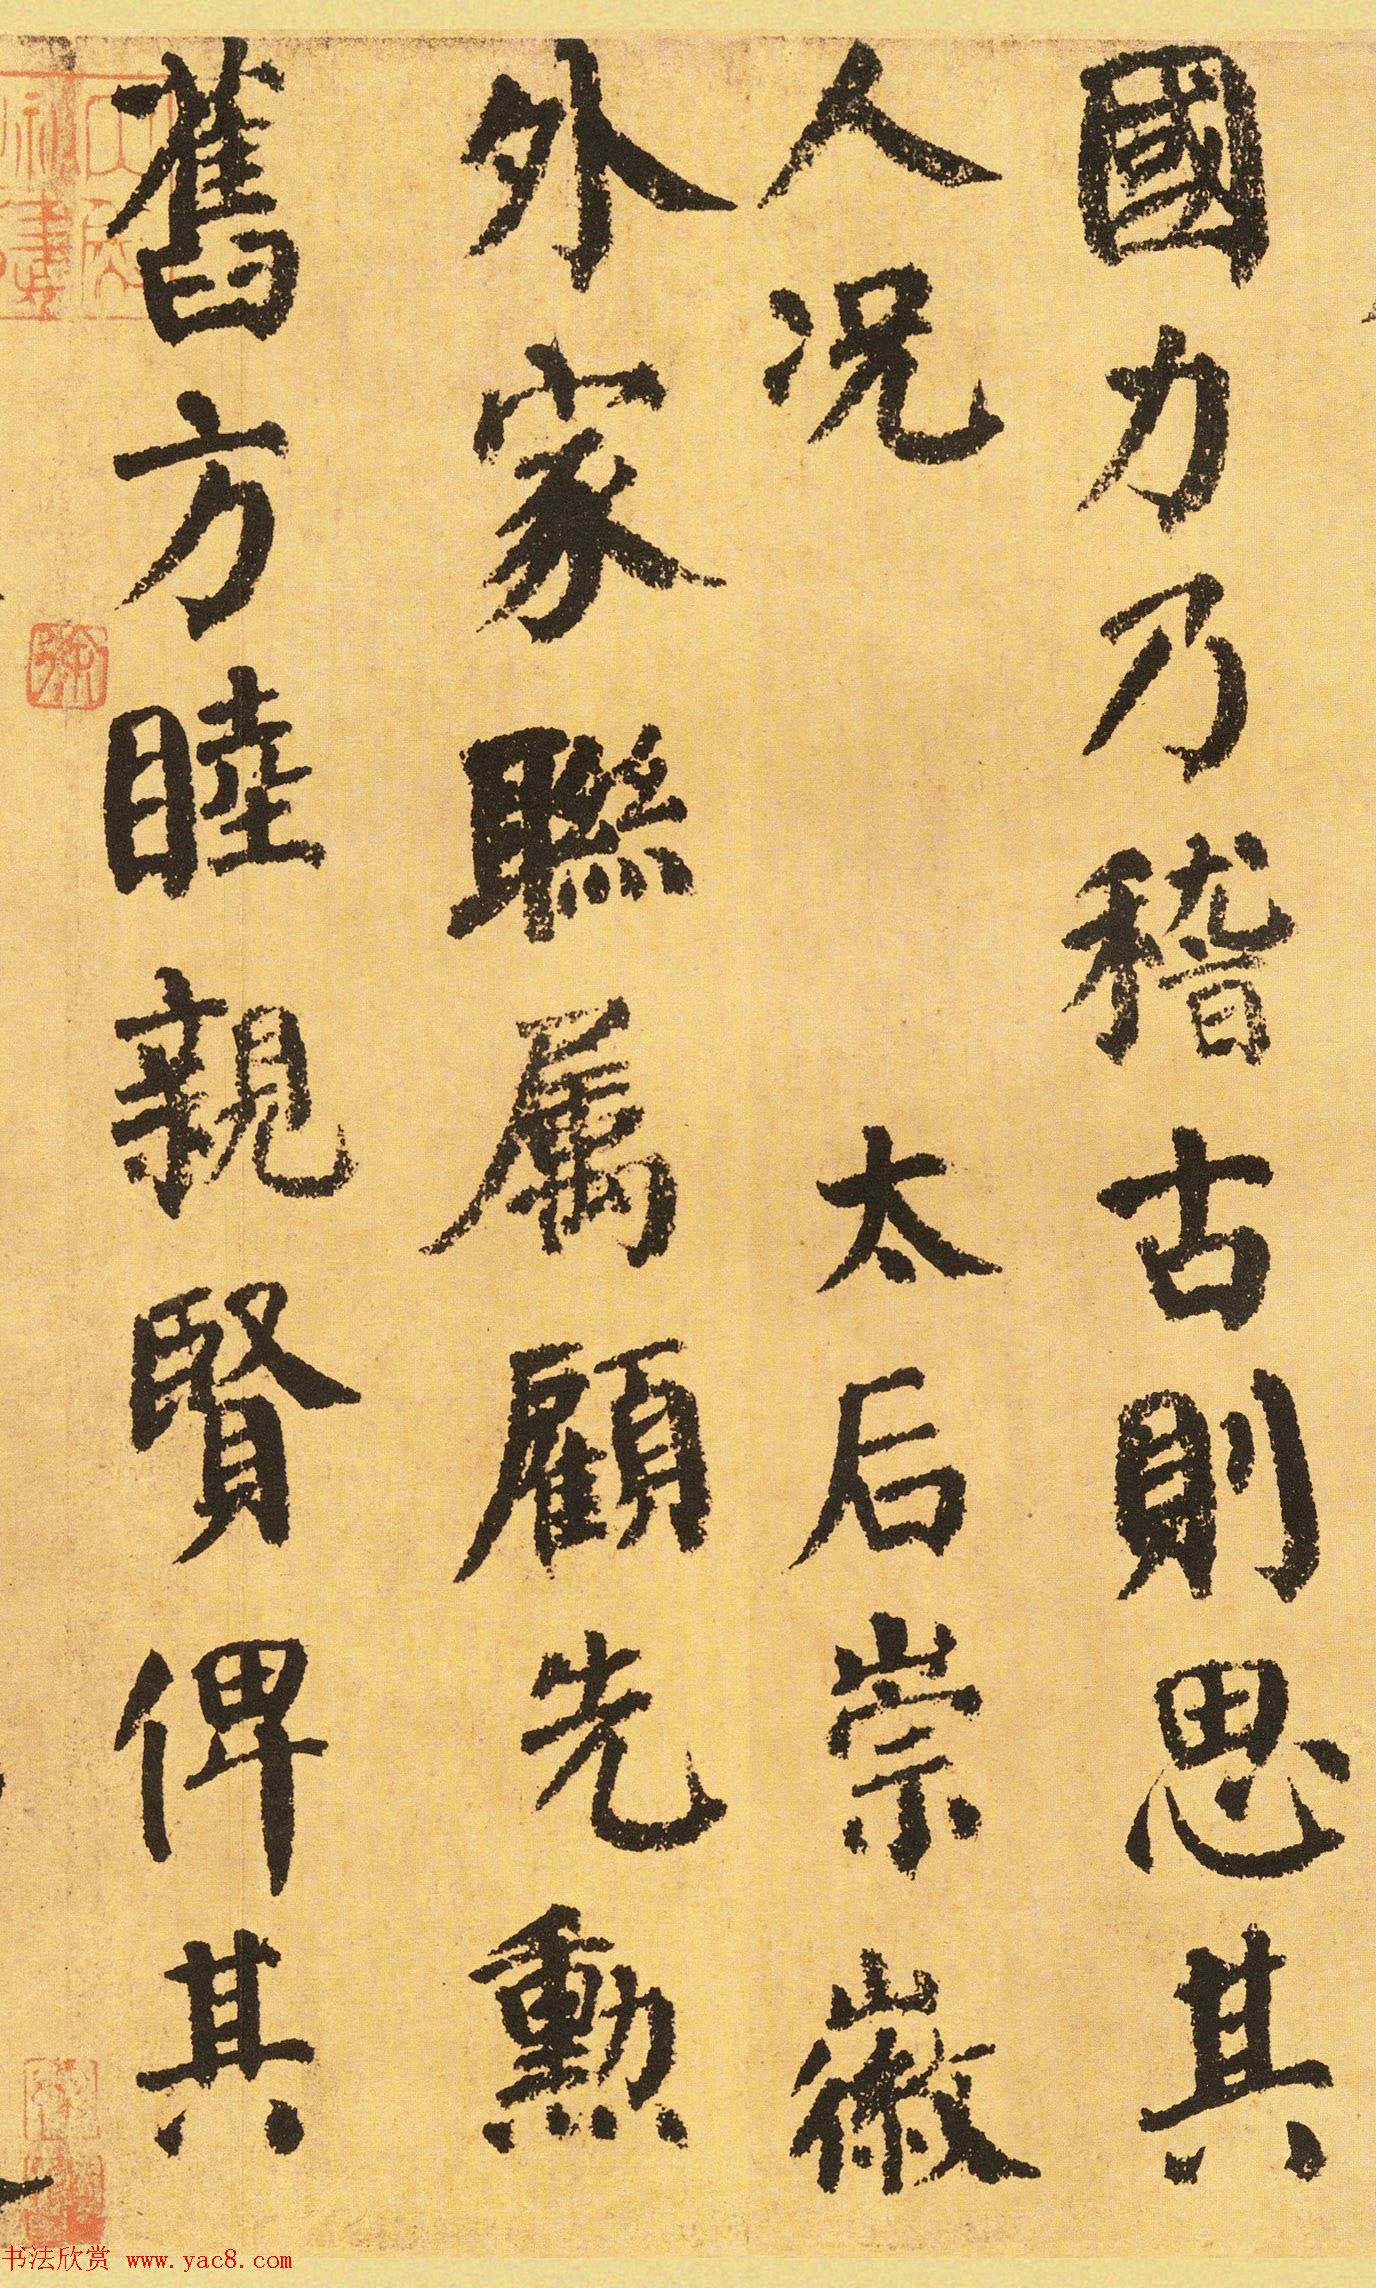 國力乃稽古則思其
人况 太后崇徽
外家聯属顧先勳
舊方睦親賢俾其
书法欣赏 www.yac8.com